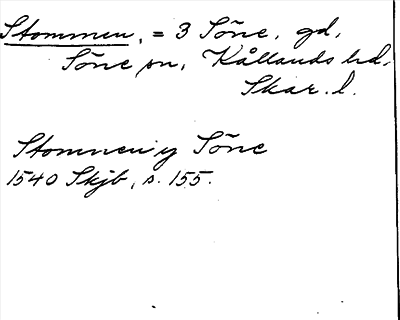 Stommen, = 3 Söne, gd,
Söne sn, Kållands hd,
Skar. l.
Stomnen y Söne
1540 Skjb, s. 155.